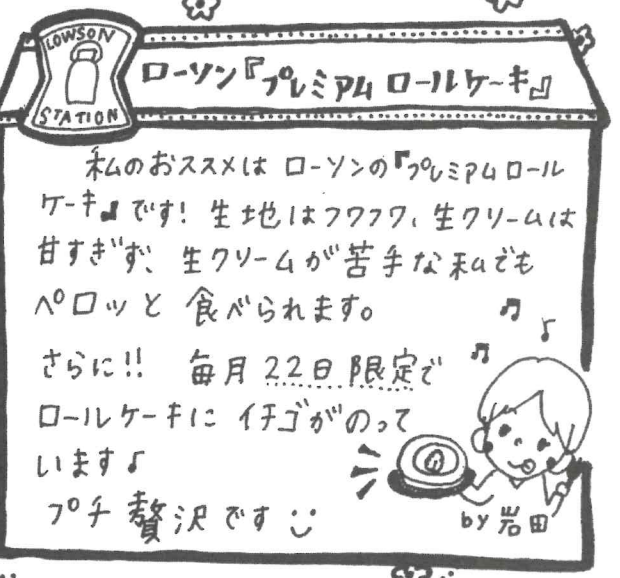 LOWSON
STATION
ローソン『プレミアムロールケーキ』
私のおススメは ローソンの『プレミアムロール
ケーキ』です! 生地はフワフワ、生クリームは
甘すぎず、生クリームが苦手な私でも
ペロッと 食べられます。
さらに!! 毎月 22日 限定で
ロールケーキに イチゴがのって
います♪
プチ 贅沢です
by 岩田